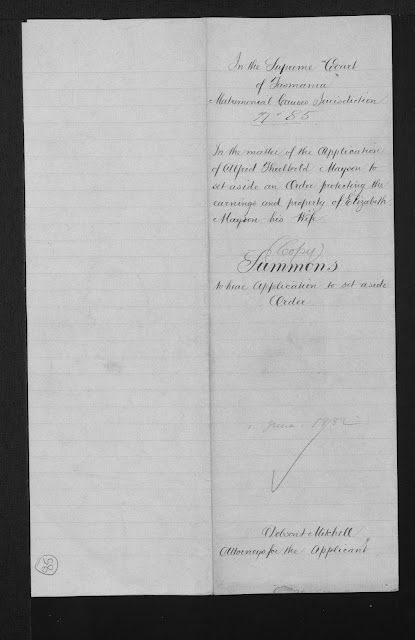 In the Supreme Court
of Tasmania
Matrimonial Causes Jurisdiction
No 85
In the matter of the Application
of Alfred Theobald Mayson to
set aside an Order protecting the
earnings and property of Elizabeth
Mayson his Wife
(Copy)
Summons
to hear Application to set aside
Order
June
Mitchell
Attorneys for the Applicant
85